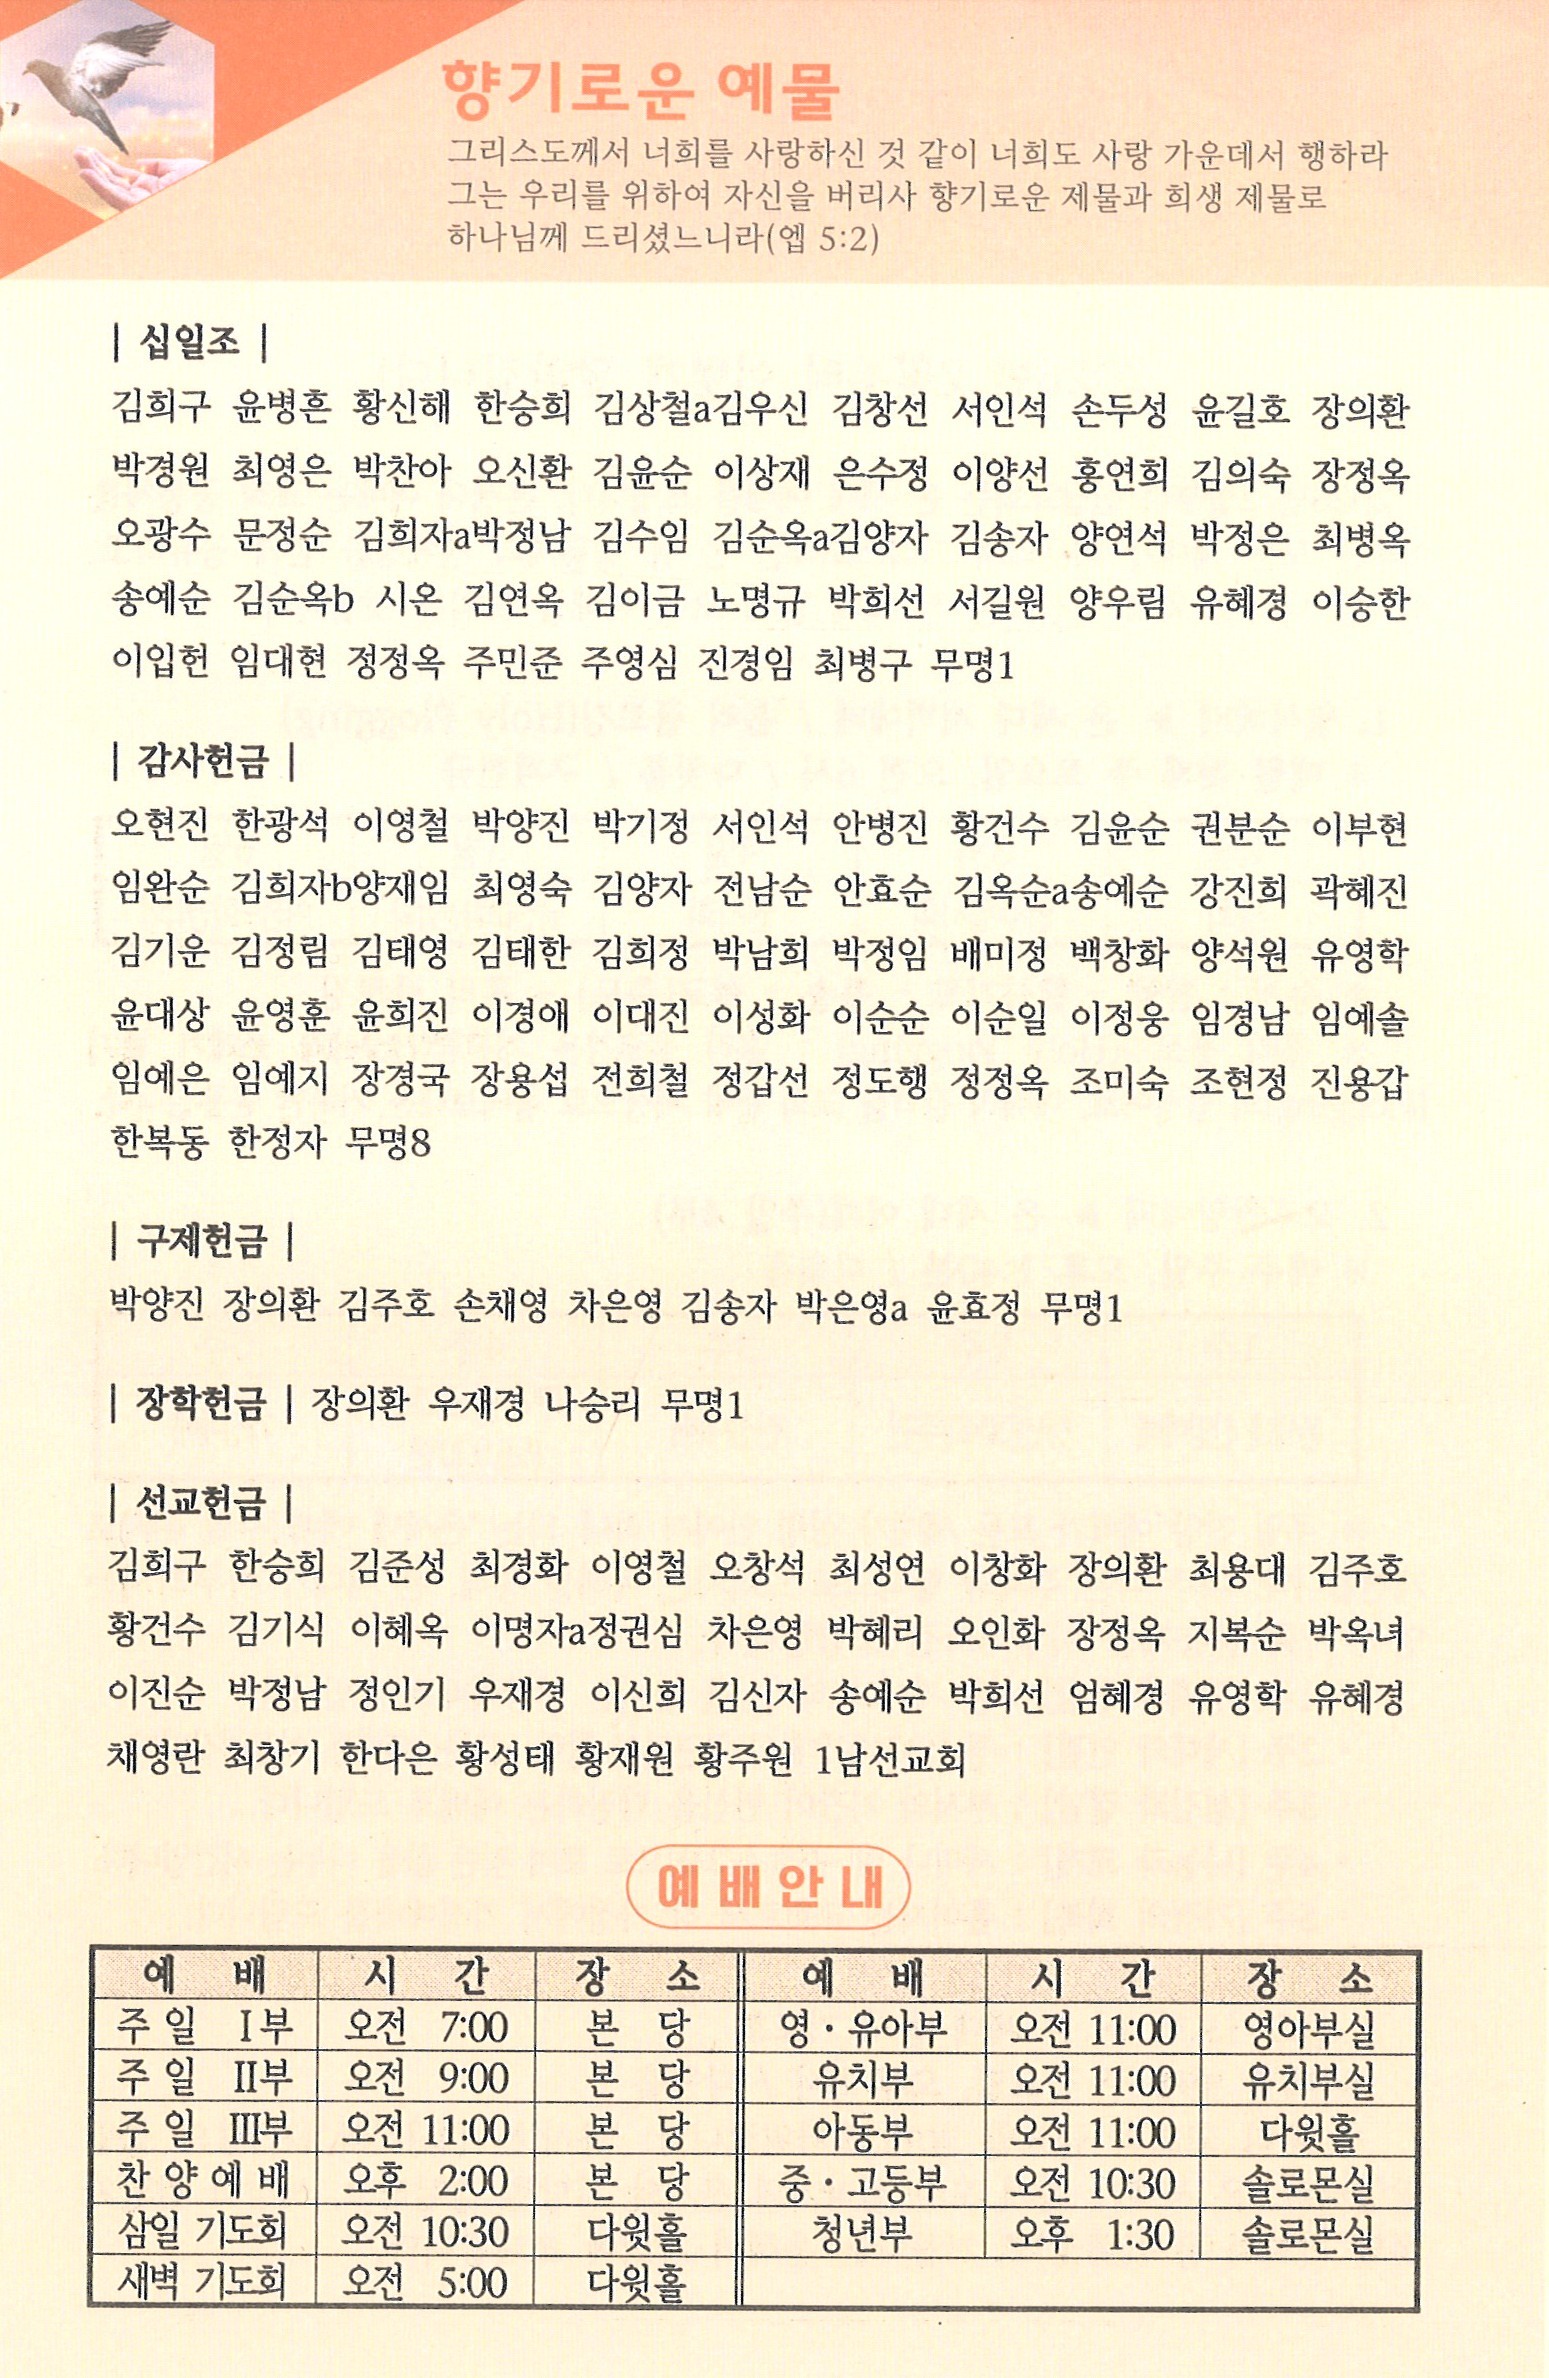 향기로운 예물
그리스도께서 너희를 사랑하신 것 같이 너희도 사랑 가운데서 행하라
그는 우리를 위하여 자신을 버리사 향기로운 제물과 희생 제물로
하나님께 드리셨느니라(엡 5:2)
| 십일조 |
김희구 윤병흔 황신해 한승희 김상철a김우신 김창선 서인석 손두성 윤길호 장의환
박경원 최영은 박찬아 오신환 김윤순 이상재 은수정 이양선 홍연희 김의숙 장정옥
오광수 문정순 김희자a박정남 김수임 김순옥a김양자 김송자 양연석 박정은 최병옥
송예순 김순옥b 시온 김연옥 김이금 노명규 박희선 서길원 양우림 유혜경 이승한
이입헌 임대현 정정옥 주민준 주영심 진경임 최병구 무명1
| 감사헌금 |
오현진 한광석 이영철 박양진 박기정 서인석 안병진 황건수 김윤순 권분순 이부현
임완순 김희자b양재임 최영숙 김양자 전남순 안효순 김옥순a송예순 강진희 곽혜진
김기운 김정림 김태영 김태한 김희정 박남희 박정임 배미정 백창화 양석원 유영학
윤대상 윤영훈 윤희진 이경애 이대진 이성화 이순순 이순일 이정웅 임경남 임예솔
임예은 임예지 장경국 장용섭 전희철 정갑선 정도행 정정옥 조미숙 조현정 진용갑
한복동 한정자 무명8
| 구제헌금 |
박양진 장의환 김주호 손채영 차은영 김송자 박은영a 윤효정 무명1
| 장학헌금 | 장의환 우재경 나승리 무명1
| 선교헌금 |
김희구 한승희 김준성 최경화 이영철 오창석 최성연 이창화 장의환 최용대 김주호
황건수 김기식 이혜옥 이명자a정권심 차은영 박혜리 오인화 장정옥 지복순 박옥녀
이진순 박정남 정인기 우재경 이신희 김신자 송예순 박희선 엄혜경 유영학 유혜경
채영란 최창기 한다은 황성태 황재원 황주원 1남선교회
예배안내
예 배 시 간 장 소 예 배 시 간 장 소
주일 I부 오전 7:00 본 당 영·유아부 오전 11:00 영아부실
주일 II부 오전 9:00 본 당 유치부 오전 11:00 유치부실
주일 III부 오전 11:00 본 당 아동부 오전 11:00 다윗홀
찬양예배 오후 2:00 본 당 중·고등부 오전 10:30 솔로몬실
삼일 기도회 오전 10:30 다윗홀 청년부 오후 1:30 솔로몬실
새벽 기도회 오전 5:00 다윗홀